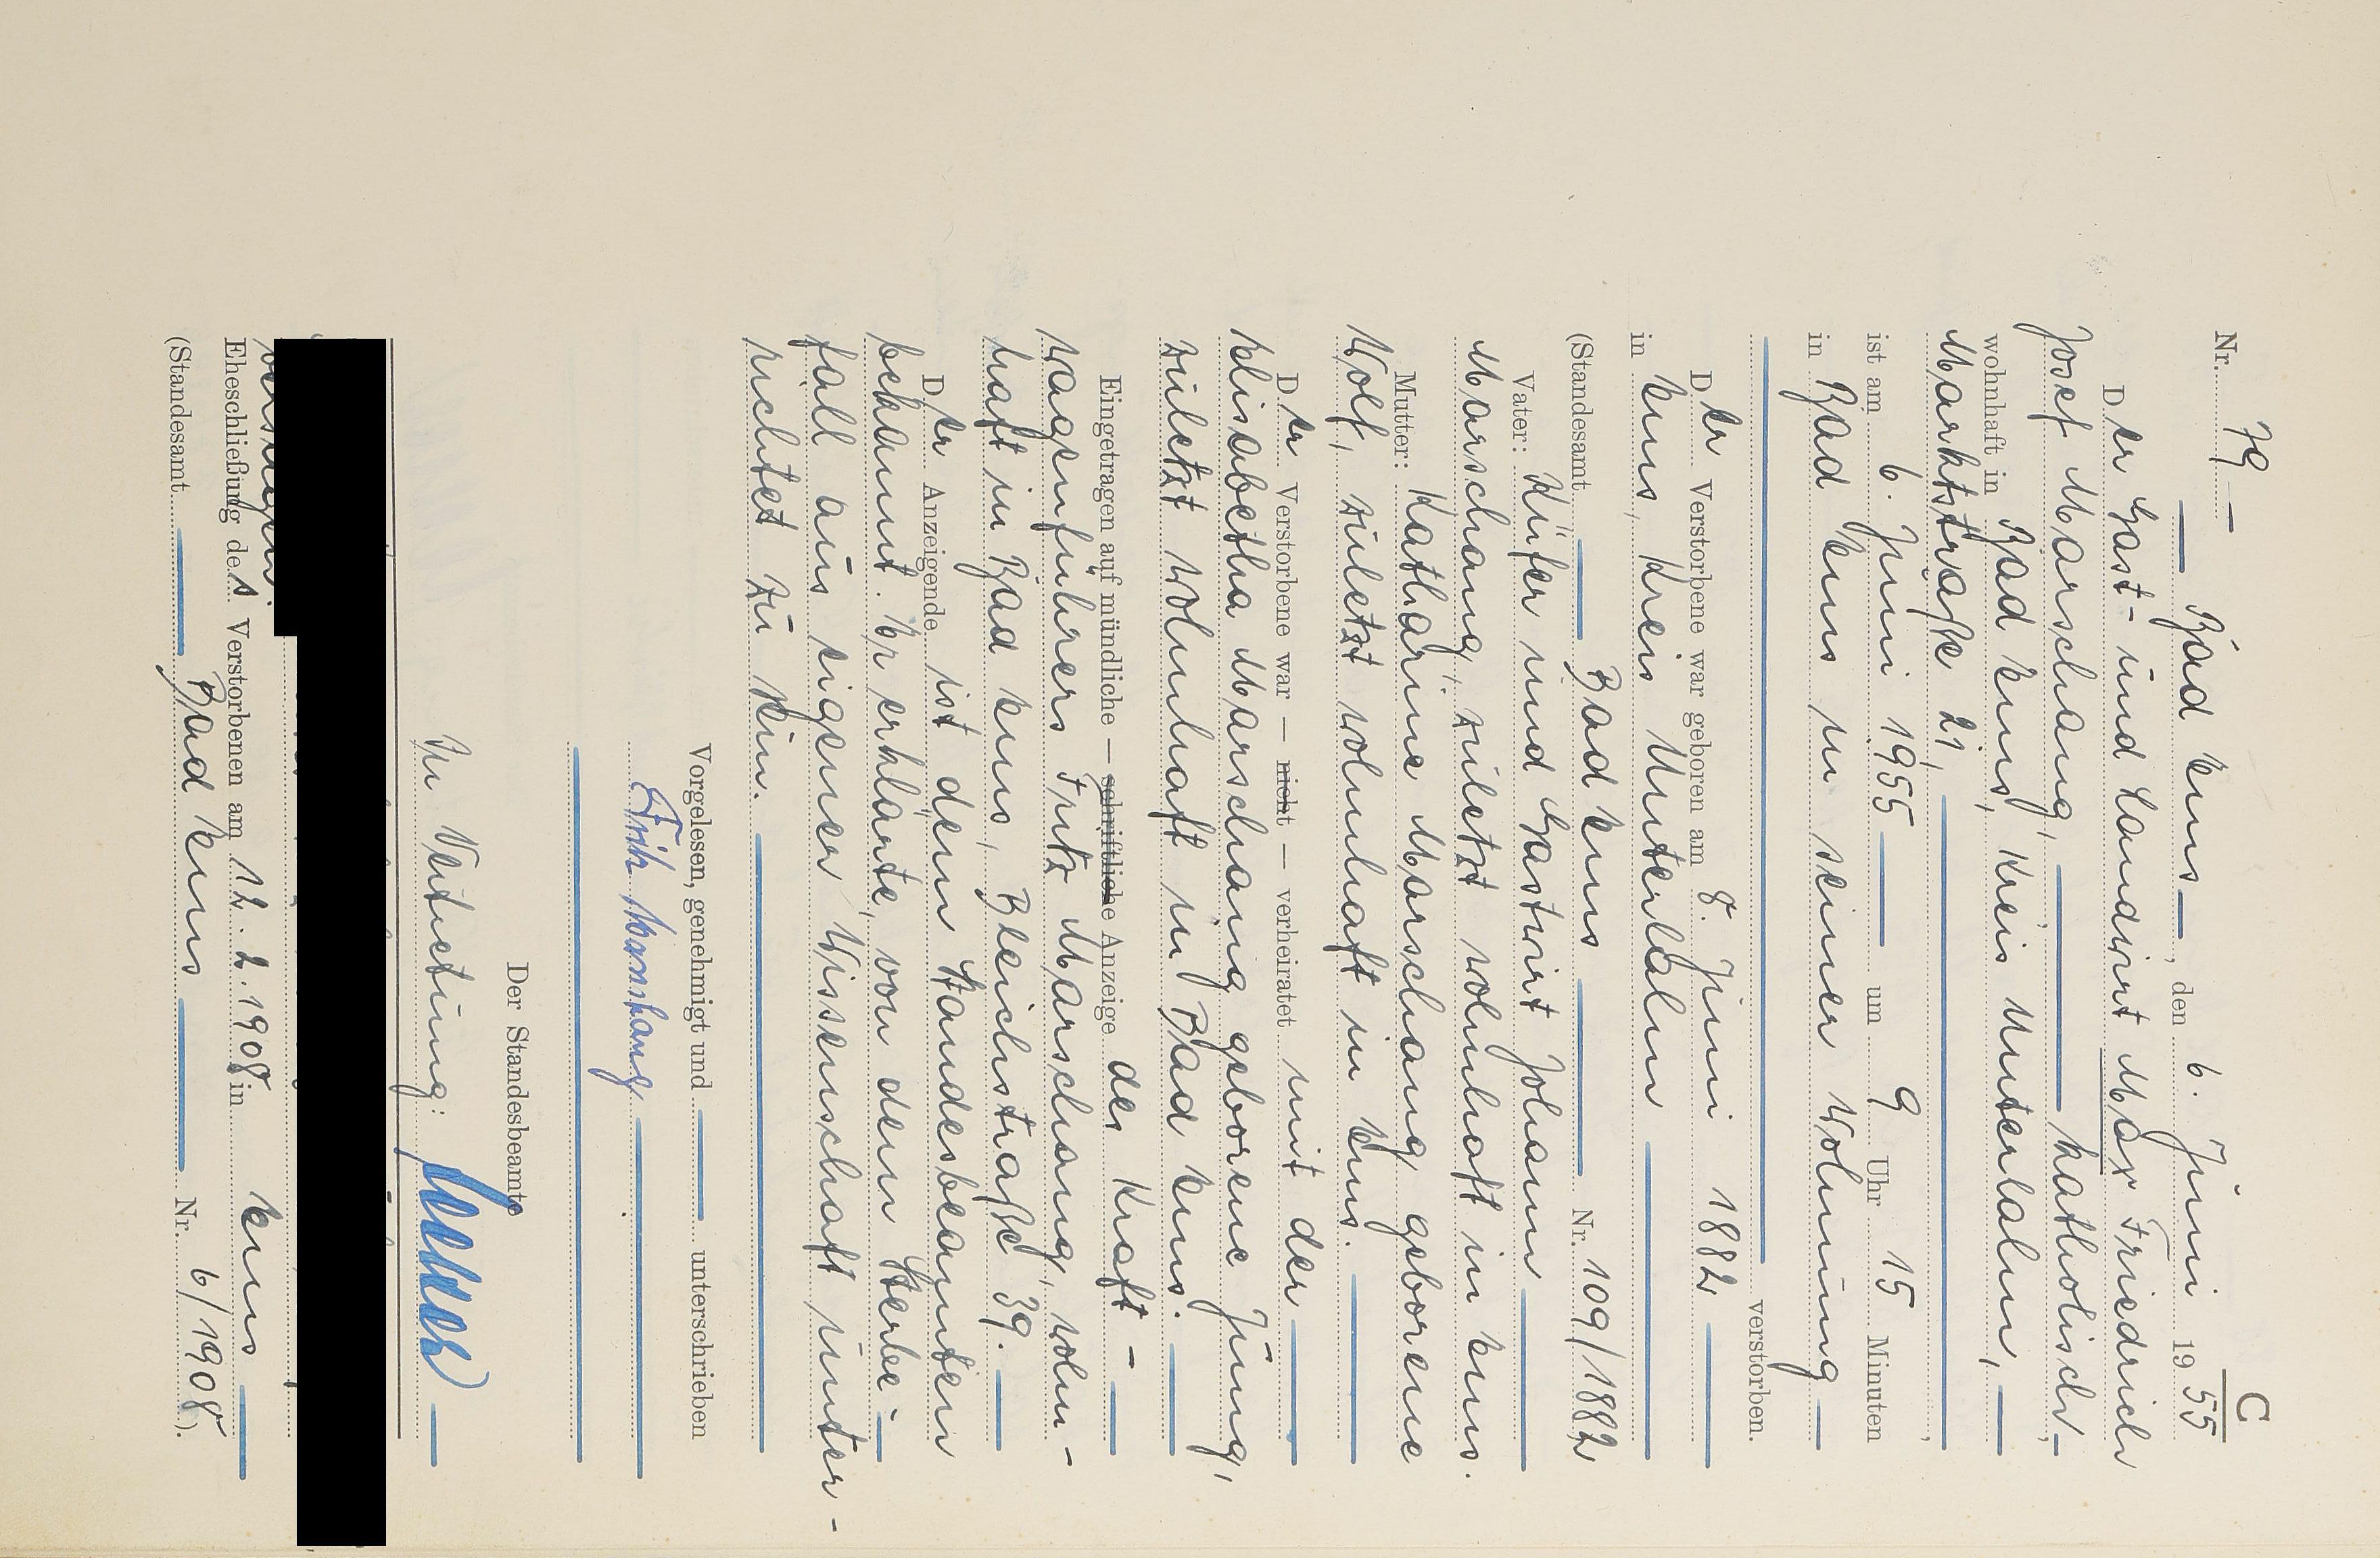 C
Nr. 79 —
— Bad Ems —, den 6. Juni 1955
Der Gast- und Landwirt Max Friedrich
Josef Marschang, — katholisch —,
wohnhaft in Bad Ems, Kreis Unterlahn, —
Marktstraße 21, —,
ist am 6. Juni 1955 — um 9 Uhr 15 Minuten
in Bad Ems in seiner Wohnung —
— verstorben.
Der Verstorbene war geboren am 8. Juni 1882 —
in Ems, Kreis Unterlahn —
(Standesamt — Bad Ems — Nr. 109/1882
Vater: Küfer und Gastwirt Johann —
Marschang, zuletzt wohnhaft in Ems.
Mutter: Katharine Marschang geborene
Wolf, zuletzt wohnhaft in Ems. —
Der Verstorbene war — nicht — verheiratet mit der —
Elisabetha Marschang geborene Jung,
zuletzt wohnhaft in Bad Ems. —
Eingetragen auf mündliche — schriftliche Anzeige des Kraft- —
wagenführers Fritz Marschang, wohn-
haft in Bad Ems, Bleichstraße 39. —
Der Anzeigende ist dem Standesbeamten
bekannt. Er erklärte, von dem Sterbe- —
fall aus eigener Wissenschaft unter-
richtet zu sein. —
Vorgelesen, genehmigt und — unterschrieben
Fritz Marschang —
Der Standesbeamte
In Vertretung: —
Eheschließung des Verstorbenen am 12. 2. 1908 in Ems —
(Standesamt — Bad Ems — Nr. 6/1908).